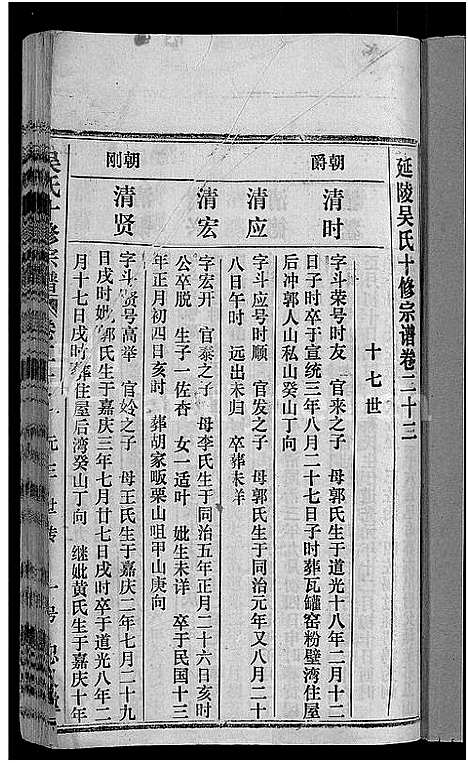 延陵吴氏十修宗谱卷二十三
十七世
朝爵
清时
字斗荣号时友 官来之子 母郭氏生于道光十八年二月十二
日子时卒于宣统三年八月二十七日子时葬瓦罐窑粉壁湾住屋
后冲郭人山私山癸山丁向
清应
字斗应号时顺 官发之子 母郭氏生于同治元年又八月二十
八日午时 远出未归 卒葬未详
清宏
字宏开 官泰之子 母李氏生于同治五年正月二十六日亥时
公卒脱 生子一佐香 女一适叶 妣生未详 卒于民国十三
年正月初四日亥时 葬胡家畈栗山咀甲山庚向
朝刚
清贤
字斗贤号高举 官姈之子 母王氏生于嘉庆二年七月二十九
日戌时妣郭氏生于嘉庆三年七月廿七日戌时卒于道光八年二
月十七日戌时葬住屋后湾癸山丁向 继妣黄氏生于嘉庆十年